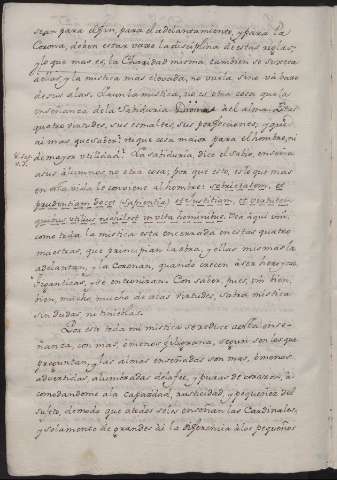 sean para el fin, para el adelantamiento, y para la
Corona, deben estar vaxo la disciplina de estas reglas,
y lo que mas es, la Charidad misma tambien se
a ellas, y la mistica mas elevada, no vuela, sino va baxo
de sus alas. La una mistica, no es otra cosa que la
enseñanza de la Sabiduria Divina à el alma. Estas
quatro virtudes, sus esmaltes, sus perfecciones; y que
ai mas que saber? ni que cosa maior para el hombre, ni
de mayor utilidad? La sabiduria, dice el Sabio, enseña
à sus alumnos, no otra cosa; por que esto, es lo que mas
en esta vida le conviene al hombre: sobrietatem, et
prudentiam docet (sapientia) et justitiam, et virtutem
quibus utilius nihil est in vita hominibus. Vea aqui
como toda la mistica esta encerrada en estas quatro
maestras, que principian la obra, y ellas mismas la
adelantan, y la coronan, quando crecen à ser heroycas,
giganticas, y de entusiasmo. Con saber, pues, un bien,
bien, mucho, mucho de estas virtudes, sabra mistica
sin dudas, ni tinieblas.
Por esto toda mi mistica se reduce a esta ense-
ñanza, con mas, ò menos que suprema, segun son los que
preguntan, y las almas enseñadas son mas, ò menos
advertidas alumbradas de la fee, y puras de corazon, à
comodandome a la capacidad, rusticidad, y pequeñez del
sujeto, demàs que atodos solo enseñan las Cardinales,
y solamente de grandes dà la diferencia à los pequeños